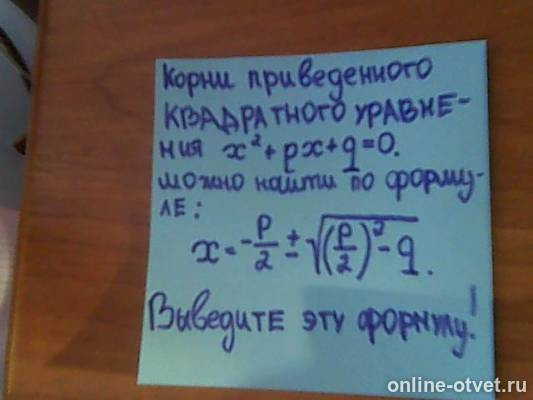 Корни приведенного
КВАДРАТНОГО УРАВНЕ-
НИЯ x² + px + q = 0.
можно найти по форму-
ЛЕ:
x = -p/2 ± √((p/2)² - q).
Выведите эту формулу!
online-otvet.ru